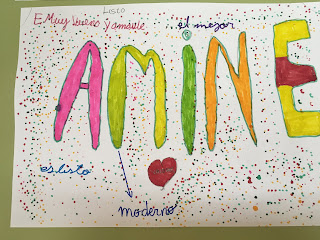 Listo
E Muy bueno y amable
el mejor
AMINE
es listo
moderno